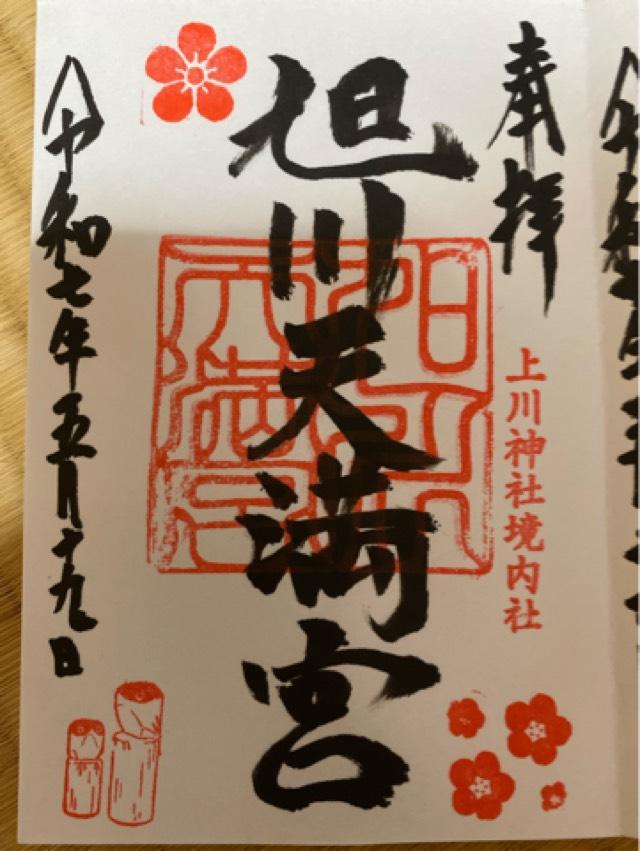 奉拝
上川神社境内社
旭川天満宮
令和七年五月十九日